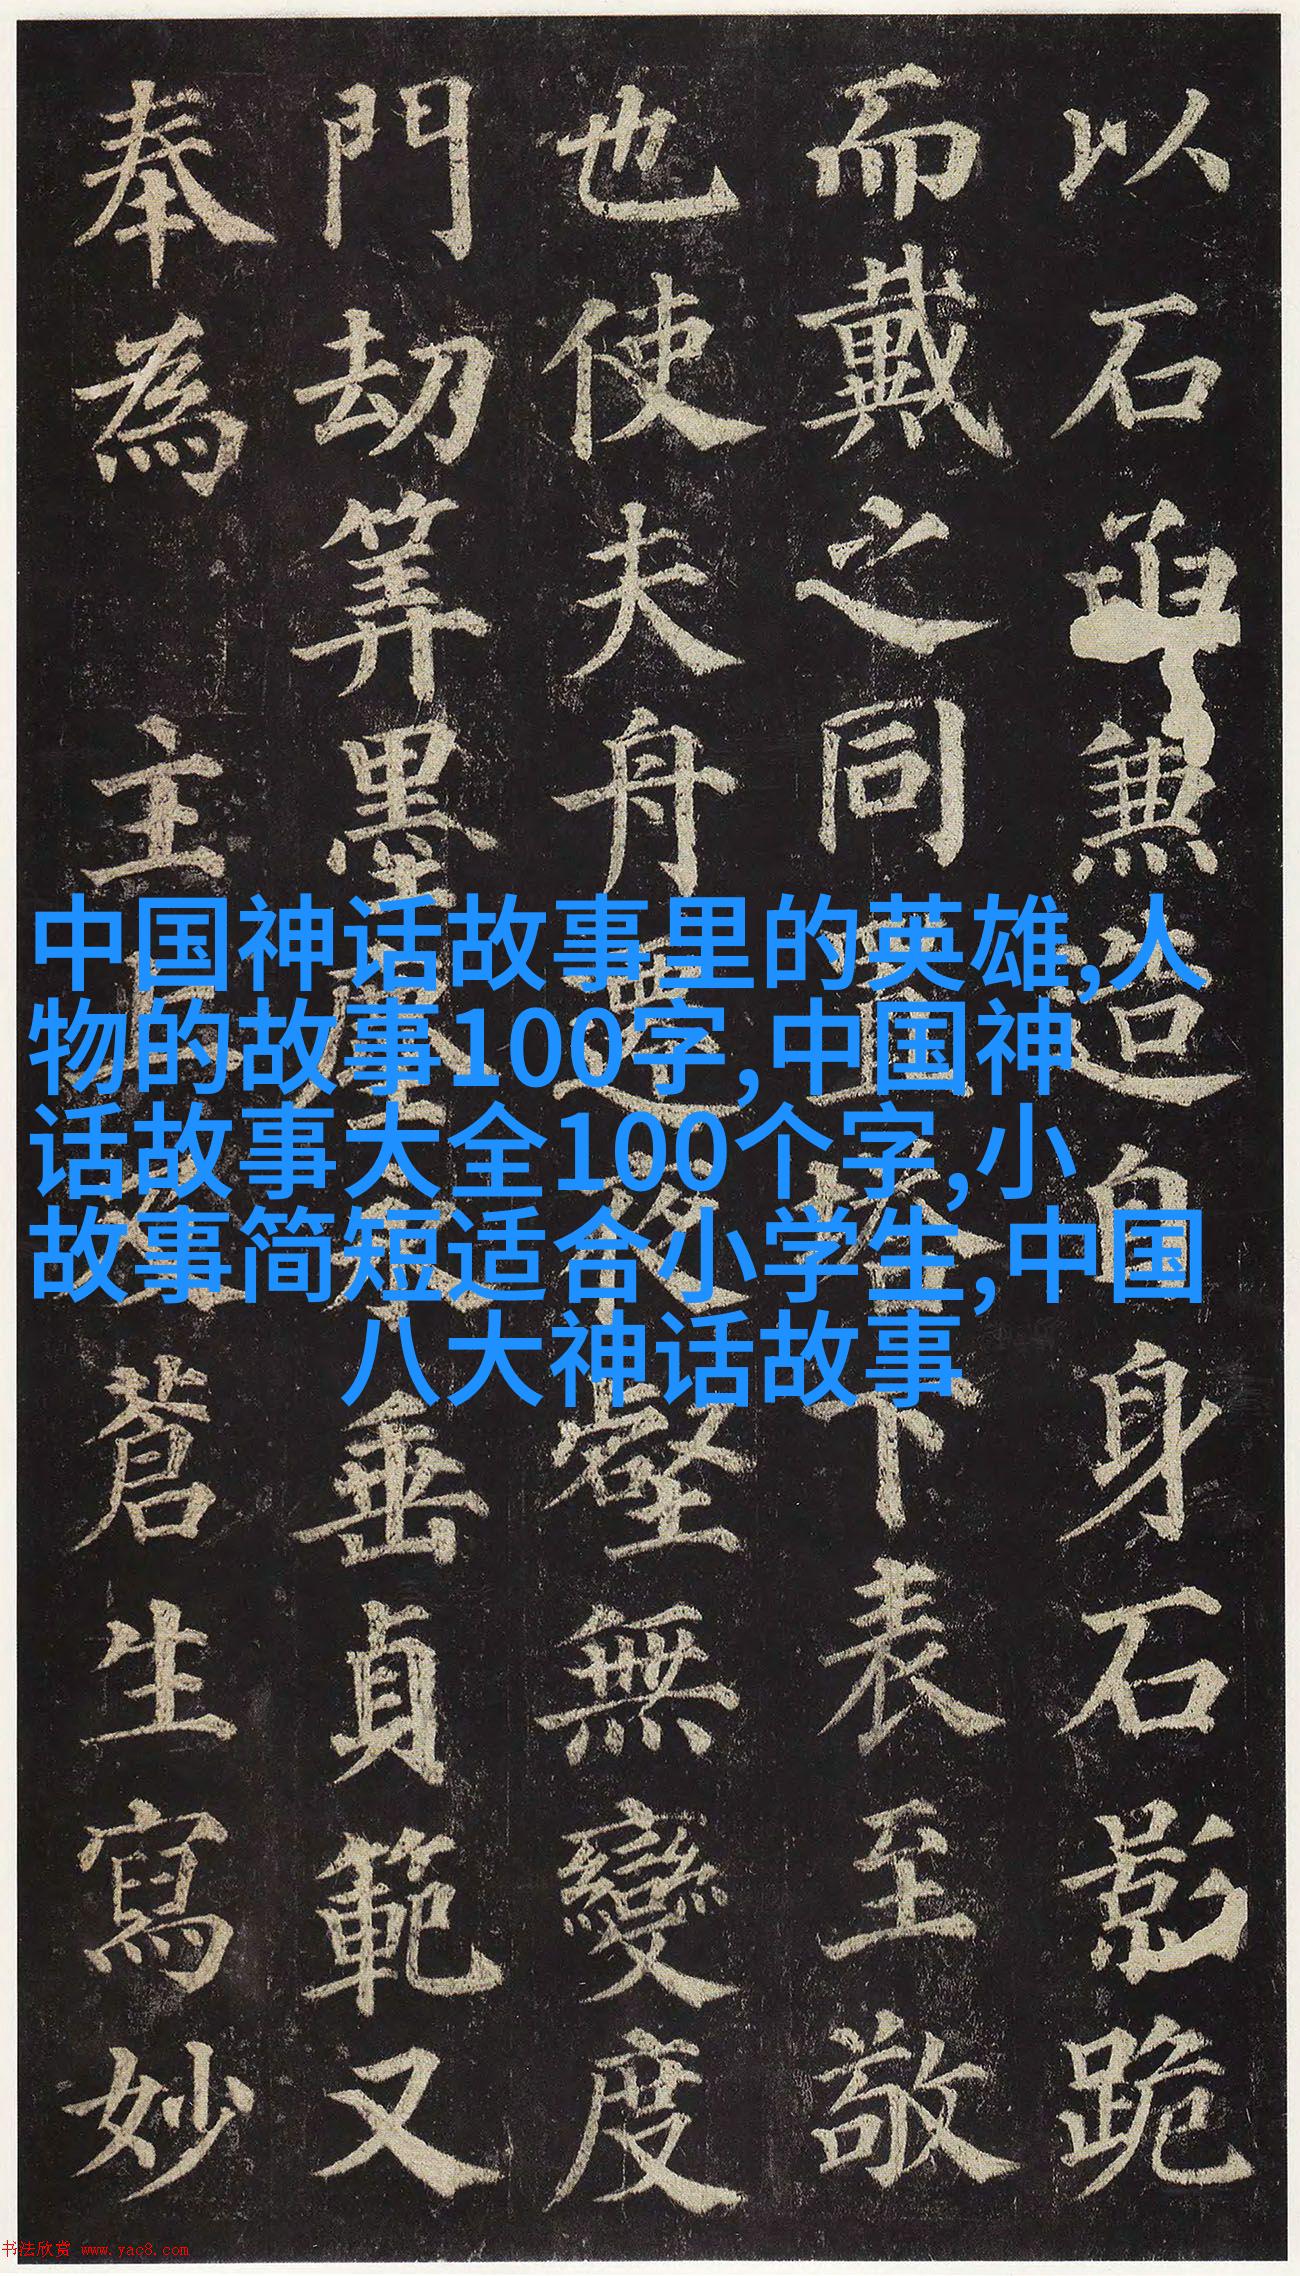 以石兼造自身石影跪
而戴之同置塔下表至敬
也使夫舟遷夜壑無變度
門劫筭墨塵永垂貞範又
奉為 主上及蒼生寫妙
中国神话故事里的英雄,人
物的故事100字,中国神
话故事大全100个字,小
故事简短适合小学生,中国
八大神话故事
书法欣赏 www.yac8.com